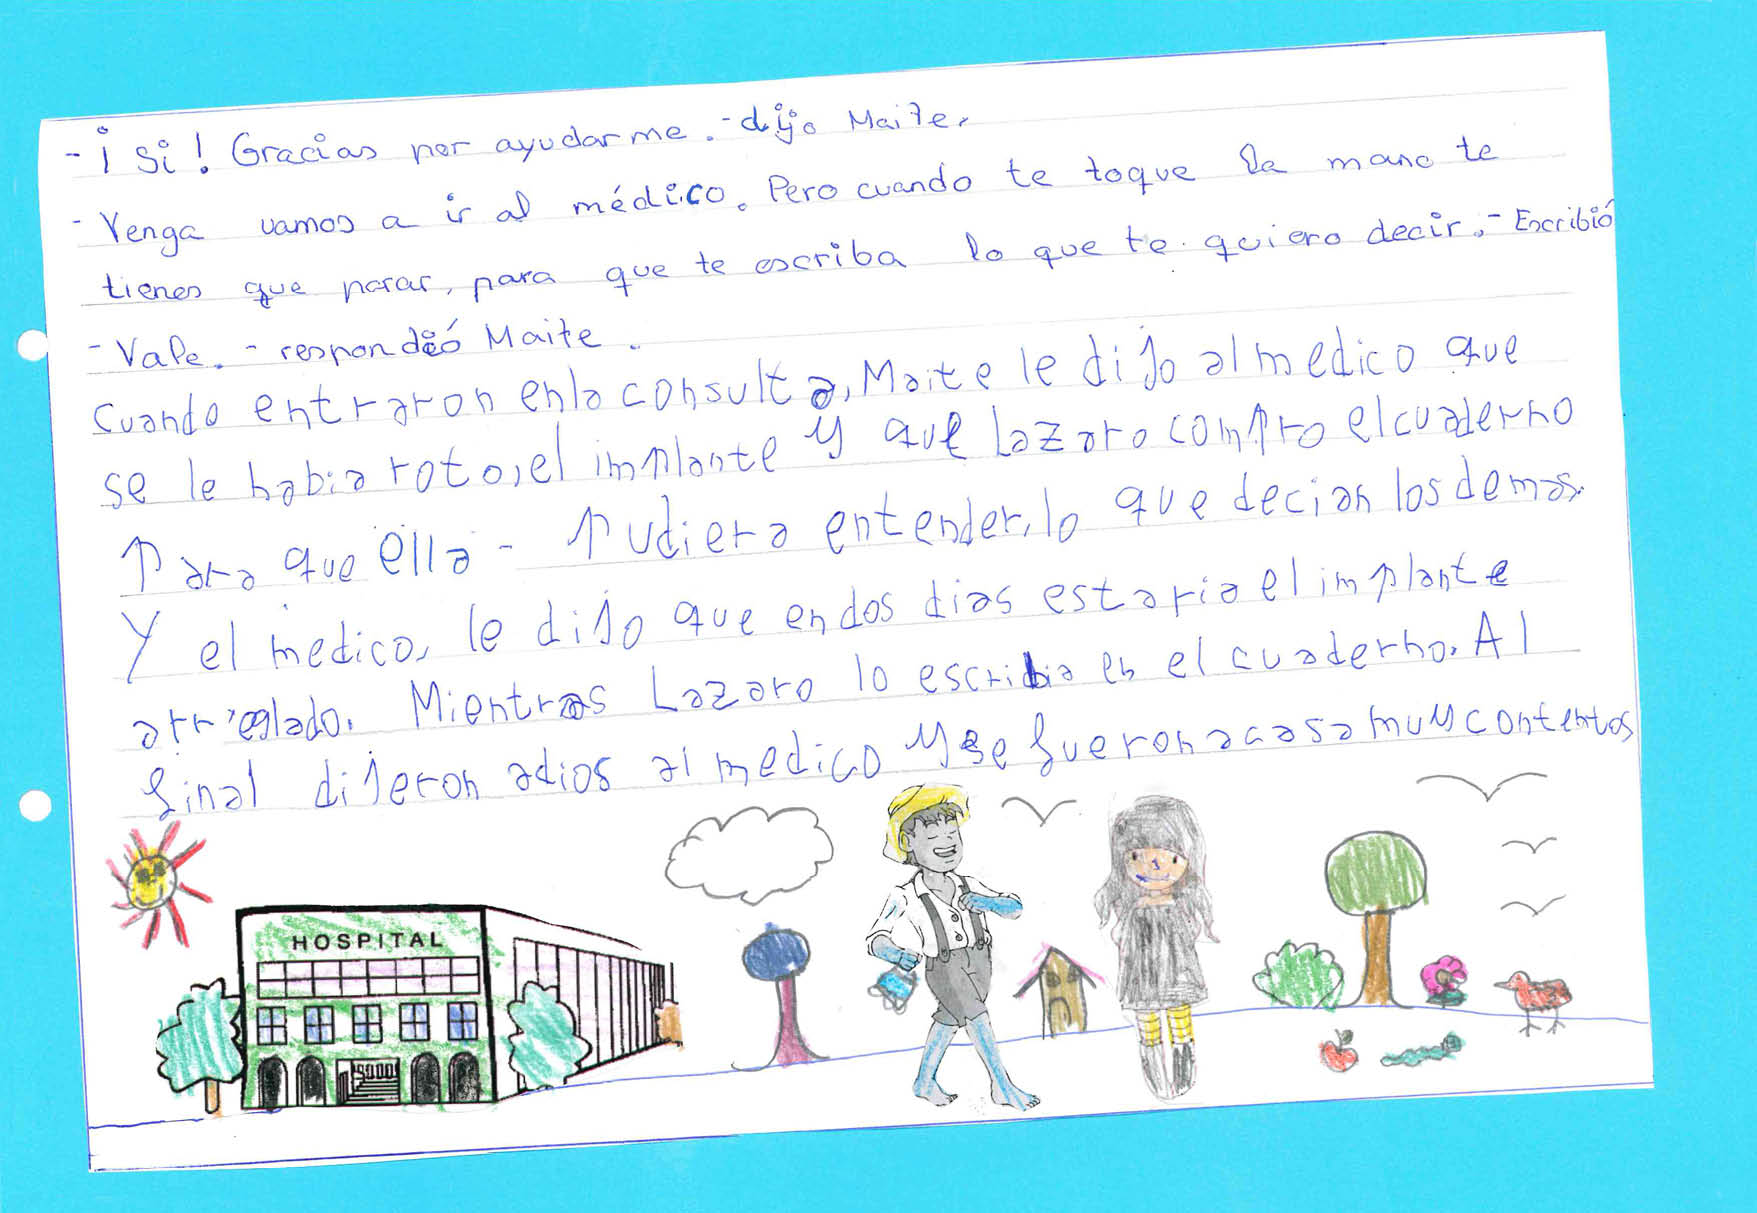 - ¡Si! Gracias por ayudarme. - dijo Maite.
- Venga vamos a ir al médico. Pero cuando te toque la mano te
tienes que parar, para que te escriba lo que te quiero decir. - Escribió
- Vale. - respondió Maite.
Cuando entraron en la consulta, Maite le dijo al medico que
se le habia roto, el implante y que Lazaro compro el cuaderno
Para que ella - pudiera entender, lo que decian los demas.
Y el medico, le dijo que en dos dias estaria el implante
arreglado. Mientras Lazaro lo escribia en el cuaderno. Al
final dijeron adios al medico y se fueron a casa muy contentos
HOSPITAL